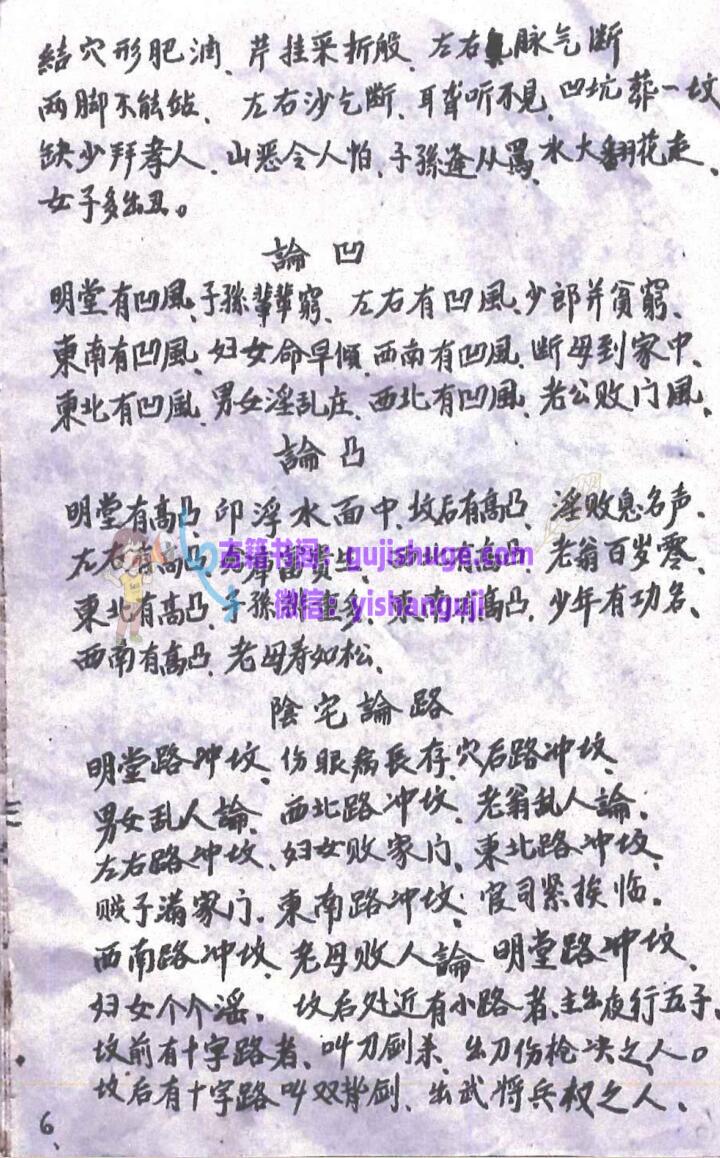 結穴形肥满、芹挂采折股、左右脉气断
两脚不能站、左右沙乞断、耳聋听不见、凹坑葬一坟
缺少拜孝人、山恶令人怕、子孫逢从罵、水大翻花走、
女子多出丑。
論凹
明堂有凹風、子孫輩輩窮、左右有凹風、少郎并貧窮、
東南有凹風、妇女命早傾、西南有凹風、断母到家中、
東北有凹風、男女淫乱庄、西北有凹風、老公败门風、
論凸
明堂有高凸、印浮水面中、坟后有高凸、淫败息名声、
左右有高凸、富贵生、有高凸、老翁百岁零、
古籍书阁：gujishuge.com
東北有高凸、子孫多、東南有高凸、少年有功名、
微信：yishanguji
西南有高凸、老母寿如松、
陰宅論路
明堂路冲坟、伤眼病長存、穴后路冲坟、
男女乱人論、西北路冲坟、老翁乱人論、
左右路冲坟、妇女败家门、東北路冲坟、
贼子满家门、東南路冲坟、官司紧挨临。
西南路冲坟、老母败人論 明堂路冲坟、
妇女个个淫。坟后处近有小路者、主出夜行五子、
坟前有十字路者、叫刀剑杀、出刀伤枪决之人。
坟后有十字路叫双背剑、出武将兵权之人、
6、